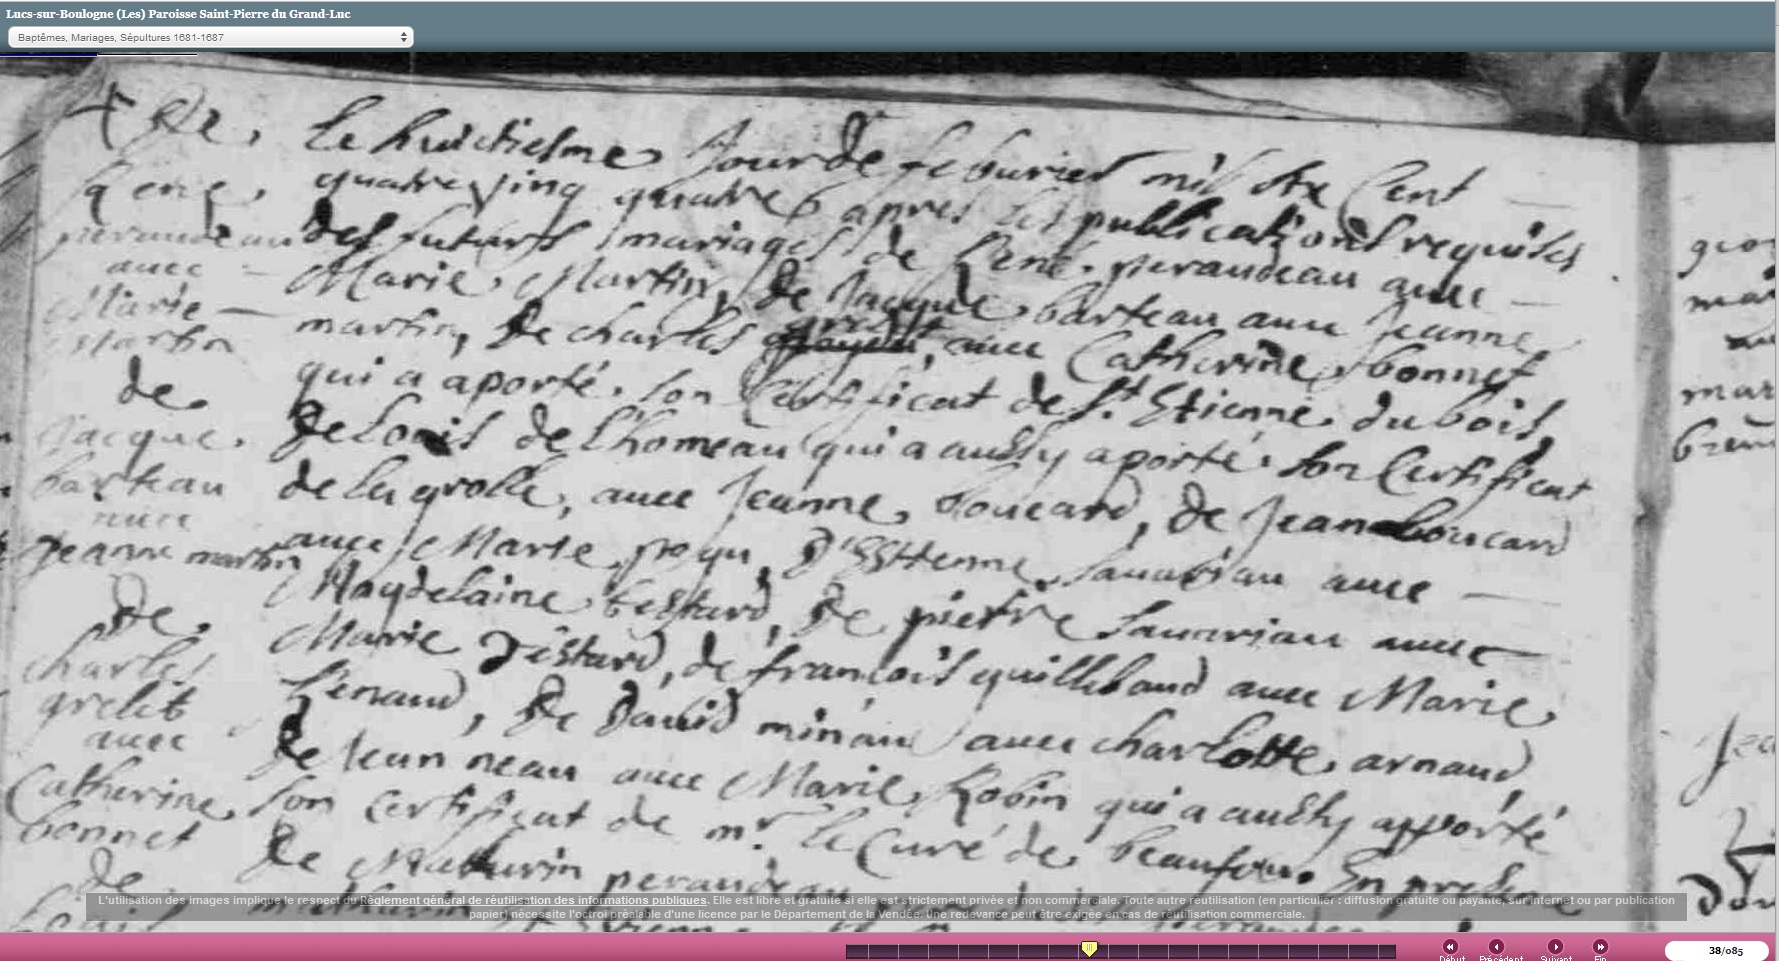 Lucs-sur-Boulogne (Les) Paroisse Saint-Pierre du Grand-Luc
Baptêmes, Mariages, Sépultures 1681-1687
Le huictiesme Jour de feburier mil six Cent
quatre ving quatre apres les publications requises
des futurs mariages de René peraudeau auec
Marie Martin, de Jacque barteau auec Jeanne
martin, de charles grelit, auec Catherine bonnet
qui a aporté son Certificat de St Etienne du bois,
de Louis de Lhomeau qui a aussy aporté son Certificat
de la grolle, auec Jeanne boucard, de Jean boucard
auec Marie, d'Estienne Sauariau auec
Magdelaine bestard, de pierre Sauariau auec
Marie bestard, de francois quillebaud auec Marie
Renaud, de Dauid minaud auec charlotte arnaud,
de Jean neau auec Marie Robin qui a aussy apporté
son Certificat de mr. le Curé de beaufou. En presence
de Mathurin peraudeau
René
peraudeau
auec
Marie
Martin
de
Jacque
barteau
auec
Jeanne martin
de
charles
grelit
auec
Catherine
bonnet
de
L'utilisation des images implique le respect du Règlement général de réutilisation des informations publiques. Elle est libre et gratuite si elle est strictement privée et non commerciale. Toute autre réutilisation (en particulier : diffusion gratuite ou payante, sur Internet ou par publication
papier) nécessite l'octroi préalable d'une licence par le Département de la Vendée. Une redevance peut être exigée en cas de réutilisation commerciale.
Début Précédent Suivant Fin
38/085